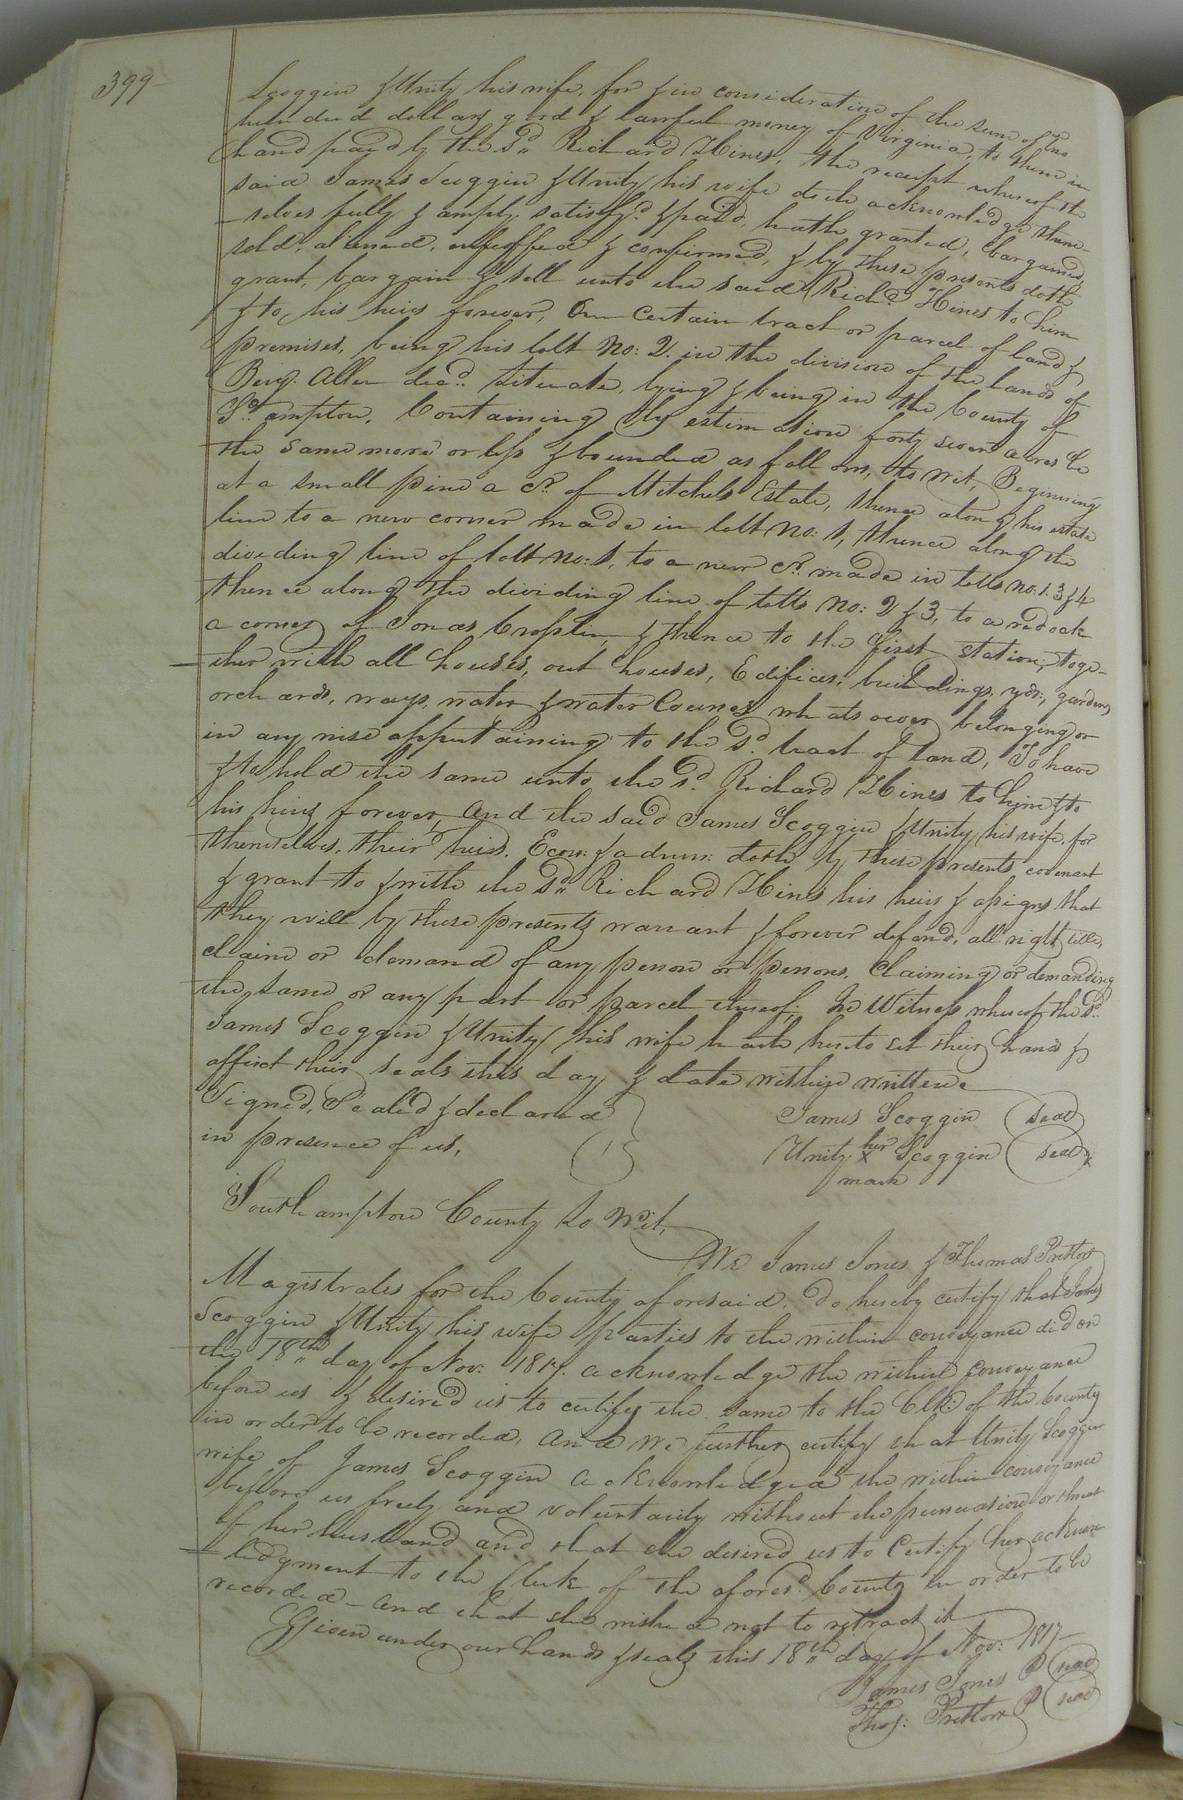 399
Scoggin & Unity his wife, for & in consideration of the sum of two
hundred dollars good & lawful money of Virginia, to them in
hand paid by the Sd. Richard Hines, the receipt whereof the
said James Scoggin & Unity his wife doth acknowledge them-
-selves fully & amply satisfyd. & paid, hath granted, bargained,
sold, aliened, enfeoffed & confirmed, & by these presents doth
grant, bargain & sell unto the said Richd. Hines to him
& to his heirs forever, One certain tract or parcel of land &
premises, being his lott No: 2. in the division of the lands of
Benj. Allen decd. situate, lying & being in the County of
So.ampton, Containing by estimation forty seven acres be
the same more or less & bounded as follows, to wit, Beginning
at a small pine a Cr. of Mitchels Estate, thence along his estate
line to a new corner made in lott No: 1, thence along the
dividing line of lott No: 1, to a new Cr. made in lotts No: 1. 3 & 4
thence along the dividing line of lotts No: 2 & 3, to a red oak
a corner of Jonas &thence to the first station, toge-
-ther with all houses, out houses, Edifices, buildings, yds, gardens
orchards, ways, water & water Courses whatsoever belonging or
in any wise appurtaining to the Sd. tract of land, To have
& to hold the same unto the Sd. Richard Hines to him & to
his heirs forever, And the said James Scoggin & Unity his wife, for
themselves, their heirs, Exors: & admrs: doth by these presents covenant
& grant to & with the Sd. Richard Hines his heirs & assigns that
they will by these presents warrant & forever defend, all right, title,
claim or demand of any person or persons, Claiming or demanding
the same or any part or parcel thereof; In Witness whereof the Sd.
James Scoggin & Unity his wife hath hereto set their hands &
affixt their seals this day & date within written
Signed, Sealed & declared
in presence of us,
James Scoggin seal
Unity her X mark Scoggin seal
Southampton County to Wit,
We James Jones & Thomas Pretlow
Magistrates for the County aforesaid, do hereby certify that James
Scoggin & Unity his wife parties to the within conveyance did on
the 18th day of Nov: 1817. acknowledge the within conveyance
before us & desired us to certify the same to the Clk: of the County
in order to be recorded, And We further certify that Unity Scoggin
wife of James Scoggin acknowledged the within conveyance
before us freely and voluntarily without the persuasion or threat
of her husband and that she desired us to Certify her acknow
-ledgment to the Clerk of the aforesd. County in order to be
recorded - and that she wished not to retract it
Given under our hands & seals this 18th day of Nov: 1817
James Jones seal
Thos: Pretlow seal